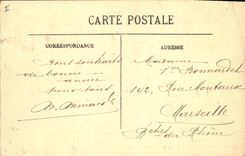 I
CARTE POSTALE
CORRESPONDANCE
ADRESSE
Bons souhaits
de bonne année
pour tous
Madame
Vve Bonnardel
142, Rue Montaux
Marseille
Bches du Rhône